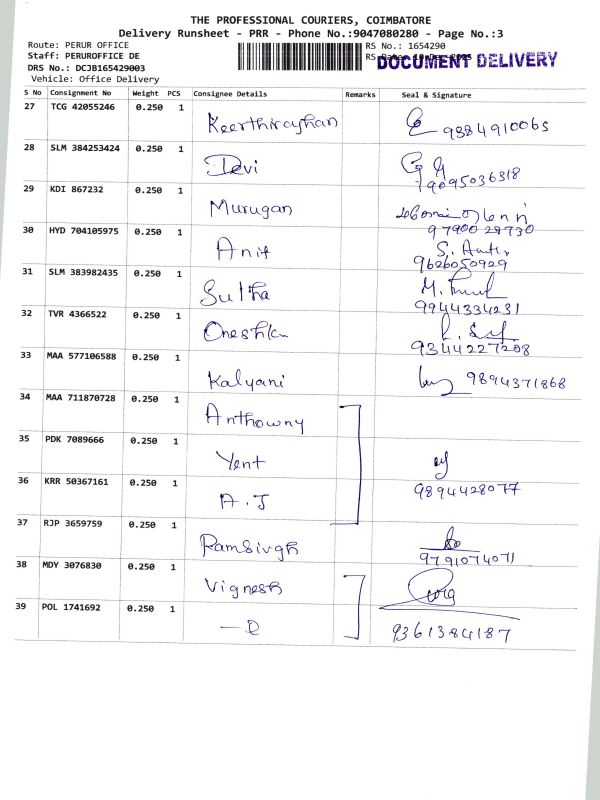 THE PROFESSIONAL COURIERS, COIMBATORE
Delivery Runsheet - PRR - Phone No.:9047080280 - Page No.:3
Route: PERUR OFFICE RS No.: 1654290
Staff: PERUROFFICE DE RS DOCUMENT DELIVERY
DRS No.: DCJB165429003
Vehicle: Office Delivery
S No Consignment No Weight PCS Consignee Details Remarks Seal & Signature
27 TCG 42055246 0.250 1 Keerthiraghan 9884910065
28 SLM 384253424 0.250 1 Devi 9095036318
29 KDI 867232 0.250 1 Murugan
9790029730
30 HYD 704105975 0.250 1 Anit
9626050929
31 SLM 383982435 0.250 1 Sutha
9944334231
32 TVR 4366522 0.250 1
9344227208
33 MAA 577106588 0.250 1 Kalyani 9894371868
34 MAA 711870728 0.250 1 Anthowny
35 PDK 7089666 0.250 1 Yent
36 KRR 50367161 0.250 1 A.J 9894428077
37 RJP 3659759 0.250 1 Ramsivgh 9791074071
38 MDY 3076830 0.250 1 Vignesh
39 POL 1741692 0.250 1 9361384187